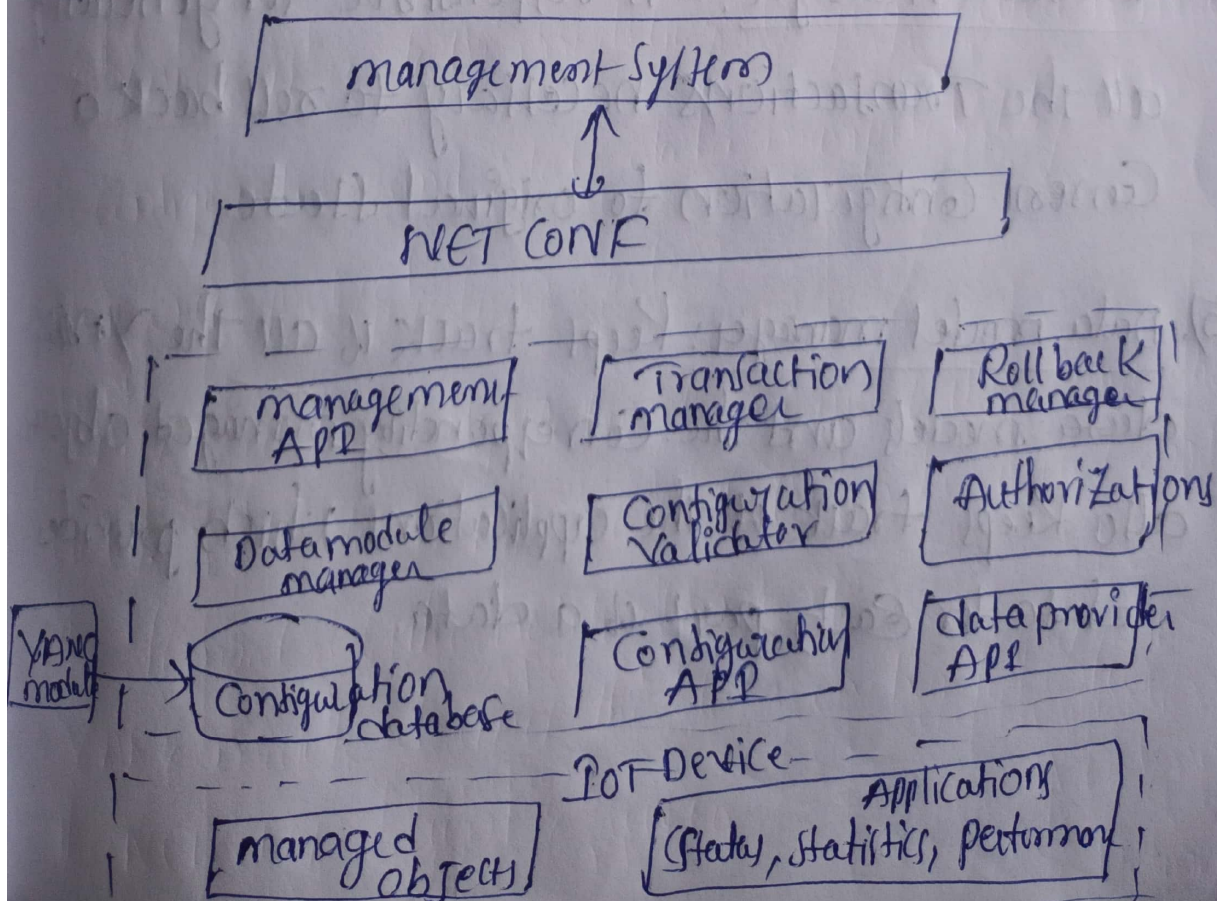 management System
NET CONF
management
API
Transaction
manager
Rollback
manager
Datamodule
manager
Configuration
Validator
Authorizations
YANG
module
Configuration
database
Configuration
API
data provider
API
IOT Device
managed
objects
Applications
(Status, statistics,